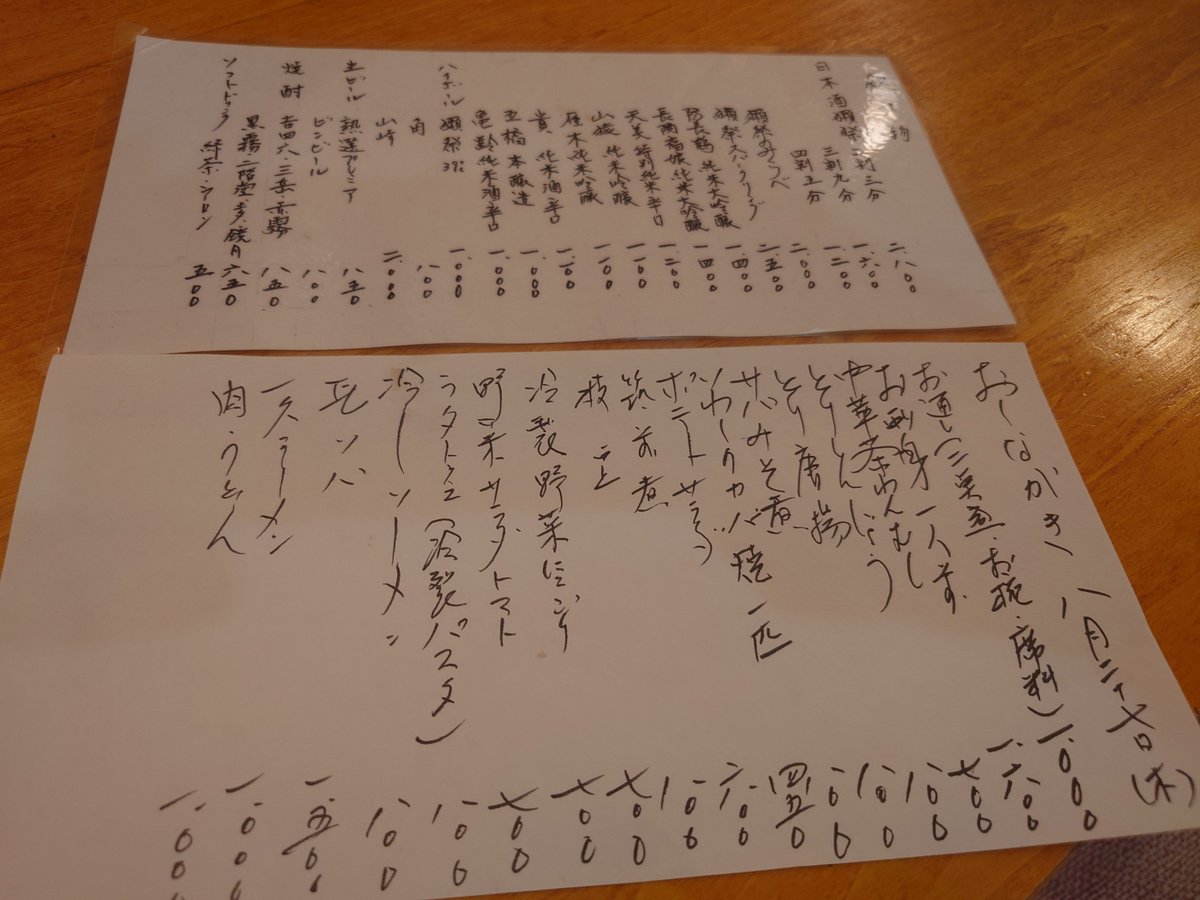 物
日本酒 獺祭 二割三分 二.八〇〇
三割九分 一.六〇〇
四割五分 一.二〇〇
獺祭のみくらべ 二.〇〇〇
獺祭スパークリング 二.五〇〇
防長鶴 純米大吟醸 一.四〇〇
長陽福娘 純米大吟醸 一.四〇〇
天美 特別純米辛口 一.二〇〇
山猿 純米吟醸 一.一〇〇
雁木 純米吟醸 一.一〇〇
貴 純米酒辛口 一.一〇〇
五橋 本醸造 一.〇〇〇
亀齢 純米酒辛口 一.〇〇〇
ハイボール 獺祭39% 一.〇〇〇
角 八〇〇
山崎 二.〇〇〇
生ビール 熟選プレミア 八五〇
ビンビール 八〇〇
焼酎 吉四六・三岳・赤霧 八五〇
黒霧・二階堂・鏡月 六五〇
ソフトドリンク 緑茶・ウーロン 五〇〇
おしながき 八月二十七日(木)
お通し(三点盛・お椀・席料) 一.〇〇〇
お刺身 一人前 一.六〇〇
中華茶わんむし 七〇〇
とりしんじょう 八〇〇
とり唐揚 八〇〇
サバみそ煮 八〇〇
いわしカバ焼 一匹 四五〇
ポテトサラダ 六〇〇
筑前煮 八〇〇
枝豆 七〇〇
冷製野菜にこごり 七〇〇
野菜サラダトマト 七〇〇
ラタトゥユ(冷製パスタ) 八〇〇
冷しソーメン 八〇〇
瓦ソバ 一.五〇〇
一久ラーメン 一.〇〇〇
肉うどん 一.〇〇